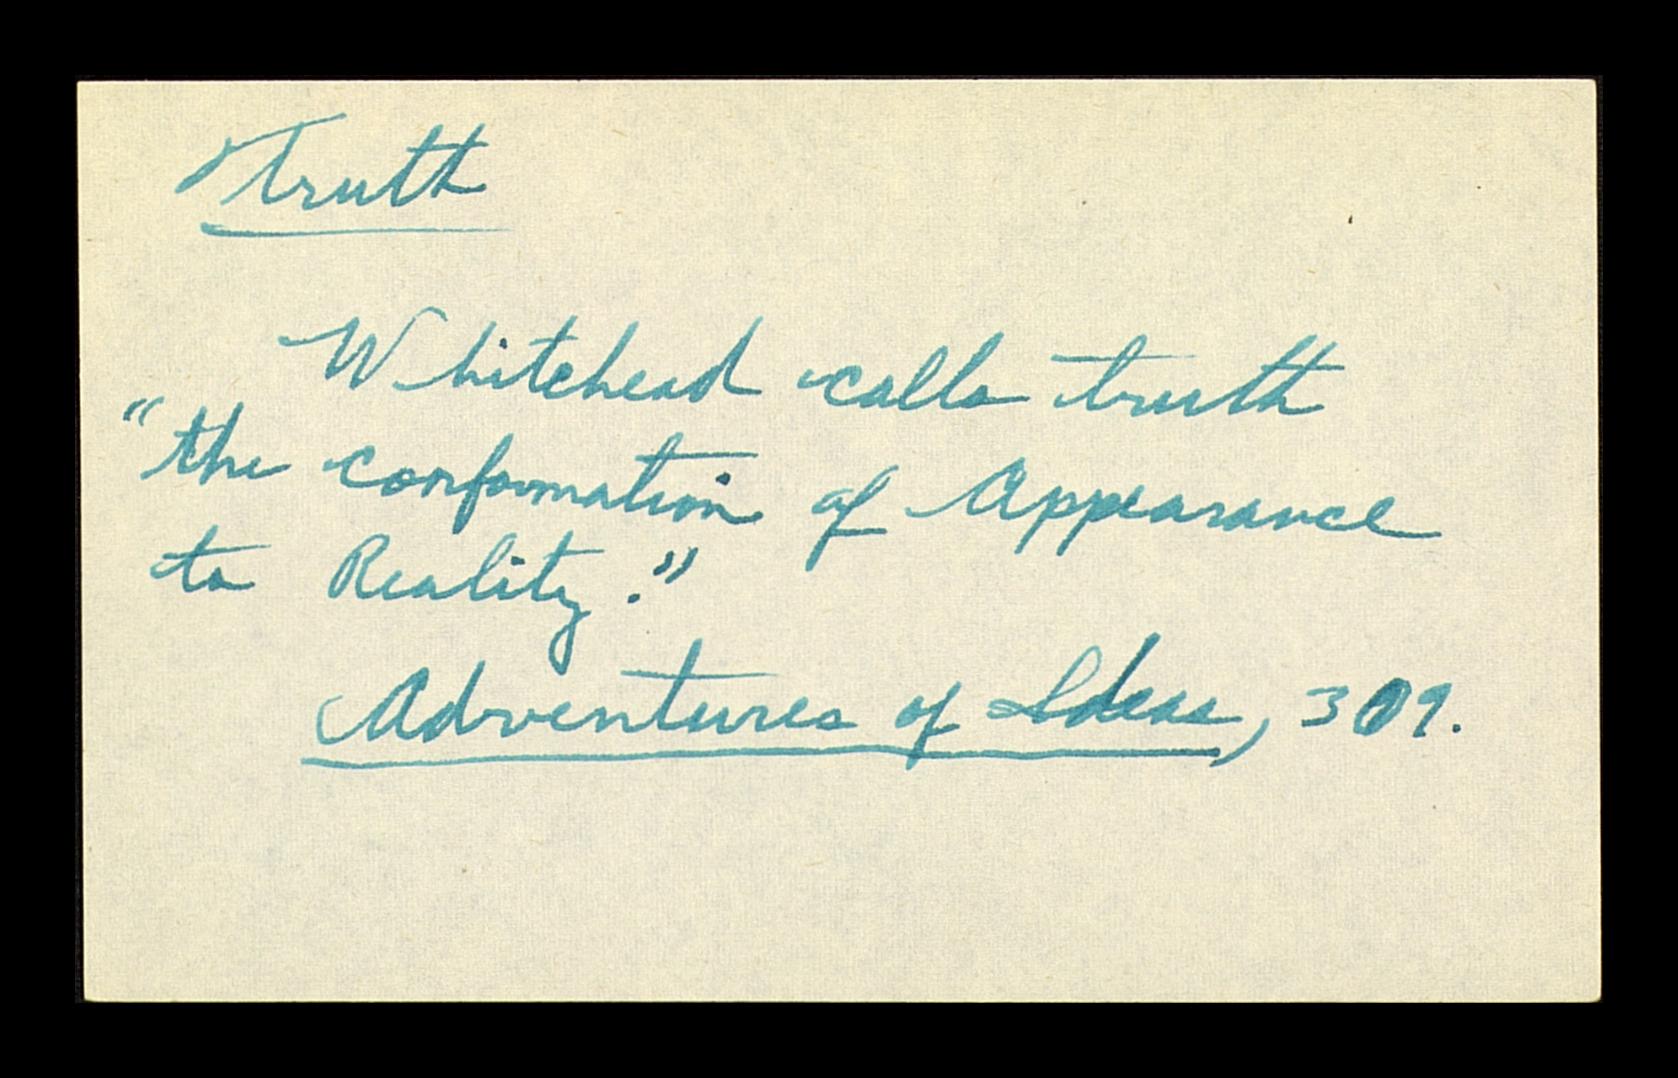 Truth
Whitehead calls truth
"the conformation of Appearance
to Reality."
Adventures of Ideas, 309.